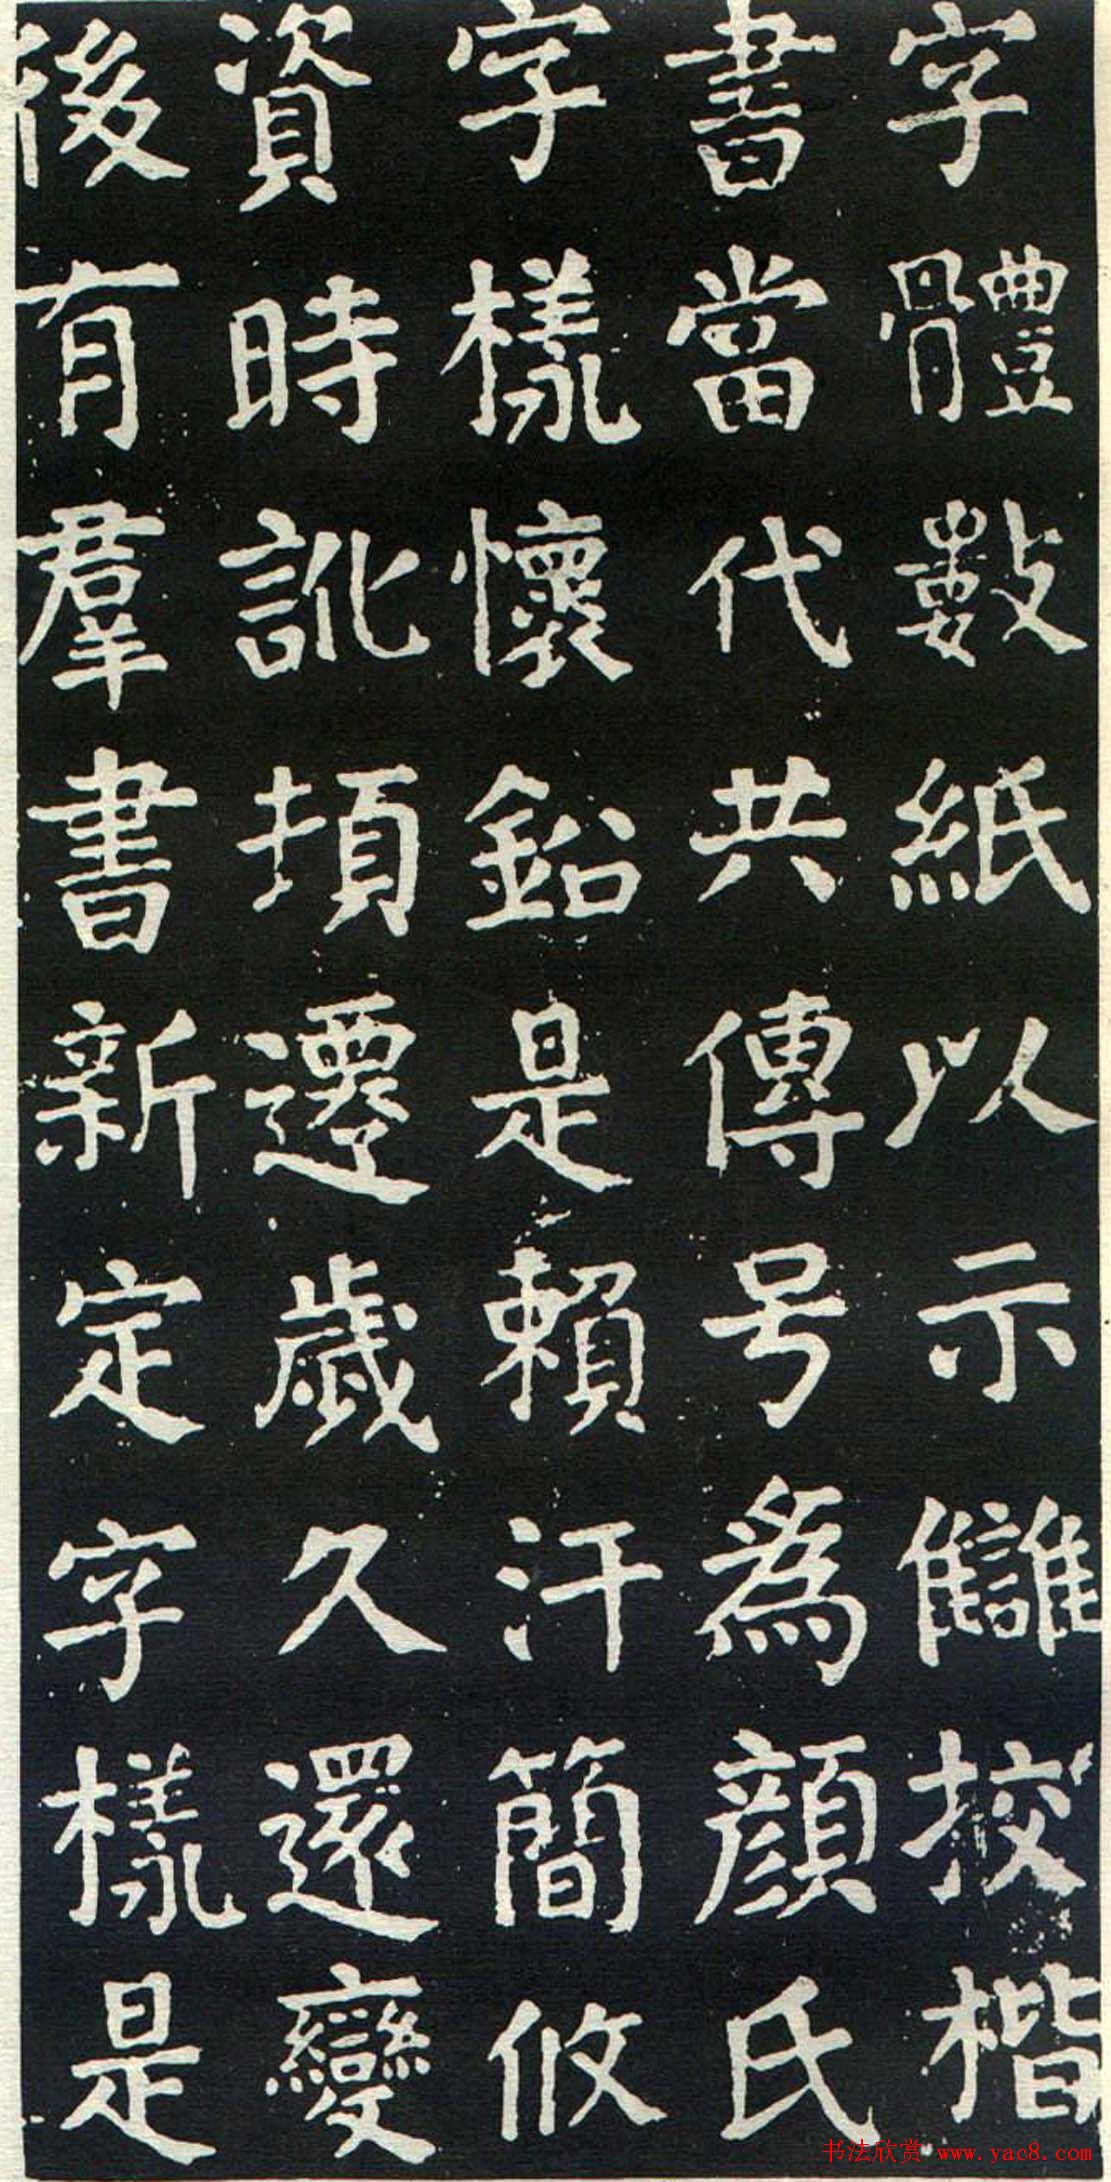 字體數紙以示讎挍楷
書當代共傳号為顔氏
字樣懷鈆是賴汗簡攸
資時訛頓遷歲久還變
後有羣書新定字樣是
书法欣赏 www.yac8.com